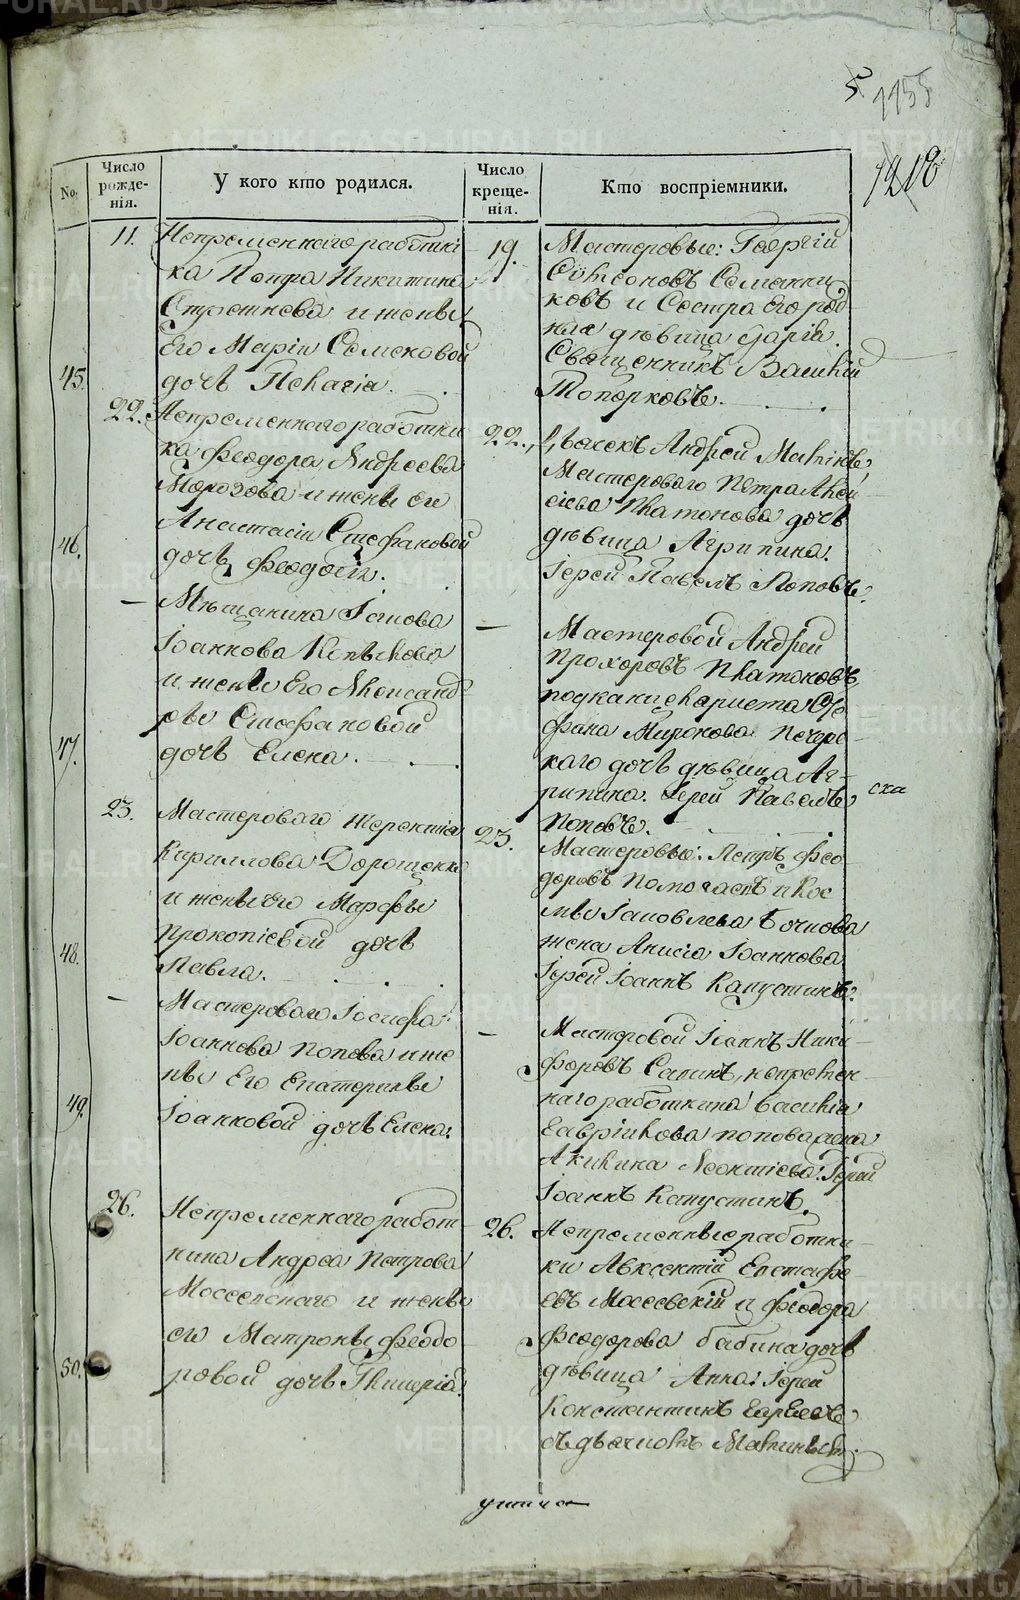 5
1158
1218
No.
Число рожде-нія.
У кого кто родился.
Число креще-нія.
Кто воспріемники.
11.
Непременнаго работни
ка Петра Никитина
и жены
Его Маріи Семеновой
45.
дочь Пелагіа.
19.
Мастеровые: Георгій
Симеоновъ
ковъ и Сестра Его род
ная девица Дарія.
Священникъ Василій
Топорковъ.
22.
Непременнаго работни
ка Феодора Андреева
Морозова и жены его
Анастасіи Стефановой
46.
дочь Феодосія.
22.
Андрей
Мастероваго Петра Алек
сіева Платонова дочь
девица Агрипина.
Іерей Павелъ Поповъ.
—
Мещанина Іакова
Іоаннова
и жены Его Александ
ры Стефановой
47.
дочь Елена.
—
Мастеровой Андрей
Прохоровъ Платоновъ,
подканцеляриста Сте
фана Миронова Печерс
каго дочь девица Аг
рипина. Іерей Павелъ
Поповъ.
ска
23.
Мастероваго Терентія
Кириллова Дорощенка
и жены его Марфы
Прокопіевой дочь
48.
Павла.
23.
Мастеровые: Петръ Фео
доровъ и Кос
мы Іаковлева Бочкова
жена Анисіа Іоаннова
Іерей Іоаннъ Капустинъ.
—
Мастероваго Іосифа
Іоаннова Попова и же
ны Его Екатерины
49.
Іоанновой дочь Елена.
—
Мастеровой Іоаннъ Ники
форовъ Сапинъ, непремен
наго работника Василія
Гаврилова Попова жена
Акилина Леонтіева: Іерей
Іоаннъ Капустинъ.
26.
Непременнаго работ
ника Андрея Петрова
Моссевскаго и жены
его Матроны Феодо
50.
ровой дочь Гликеріа.
26.
Непременные работни
ки Авксентій Евстафі
евъ Мосевскій и Феодора
Феодорова Бабина дочь
девица Анна: Іерей
Константинъ
съ дьячкомъ